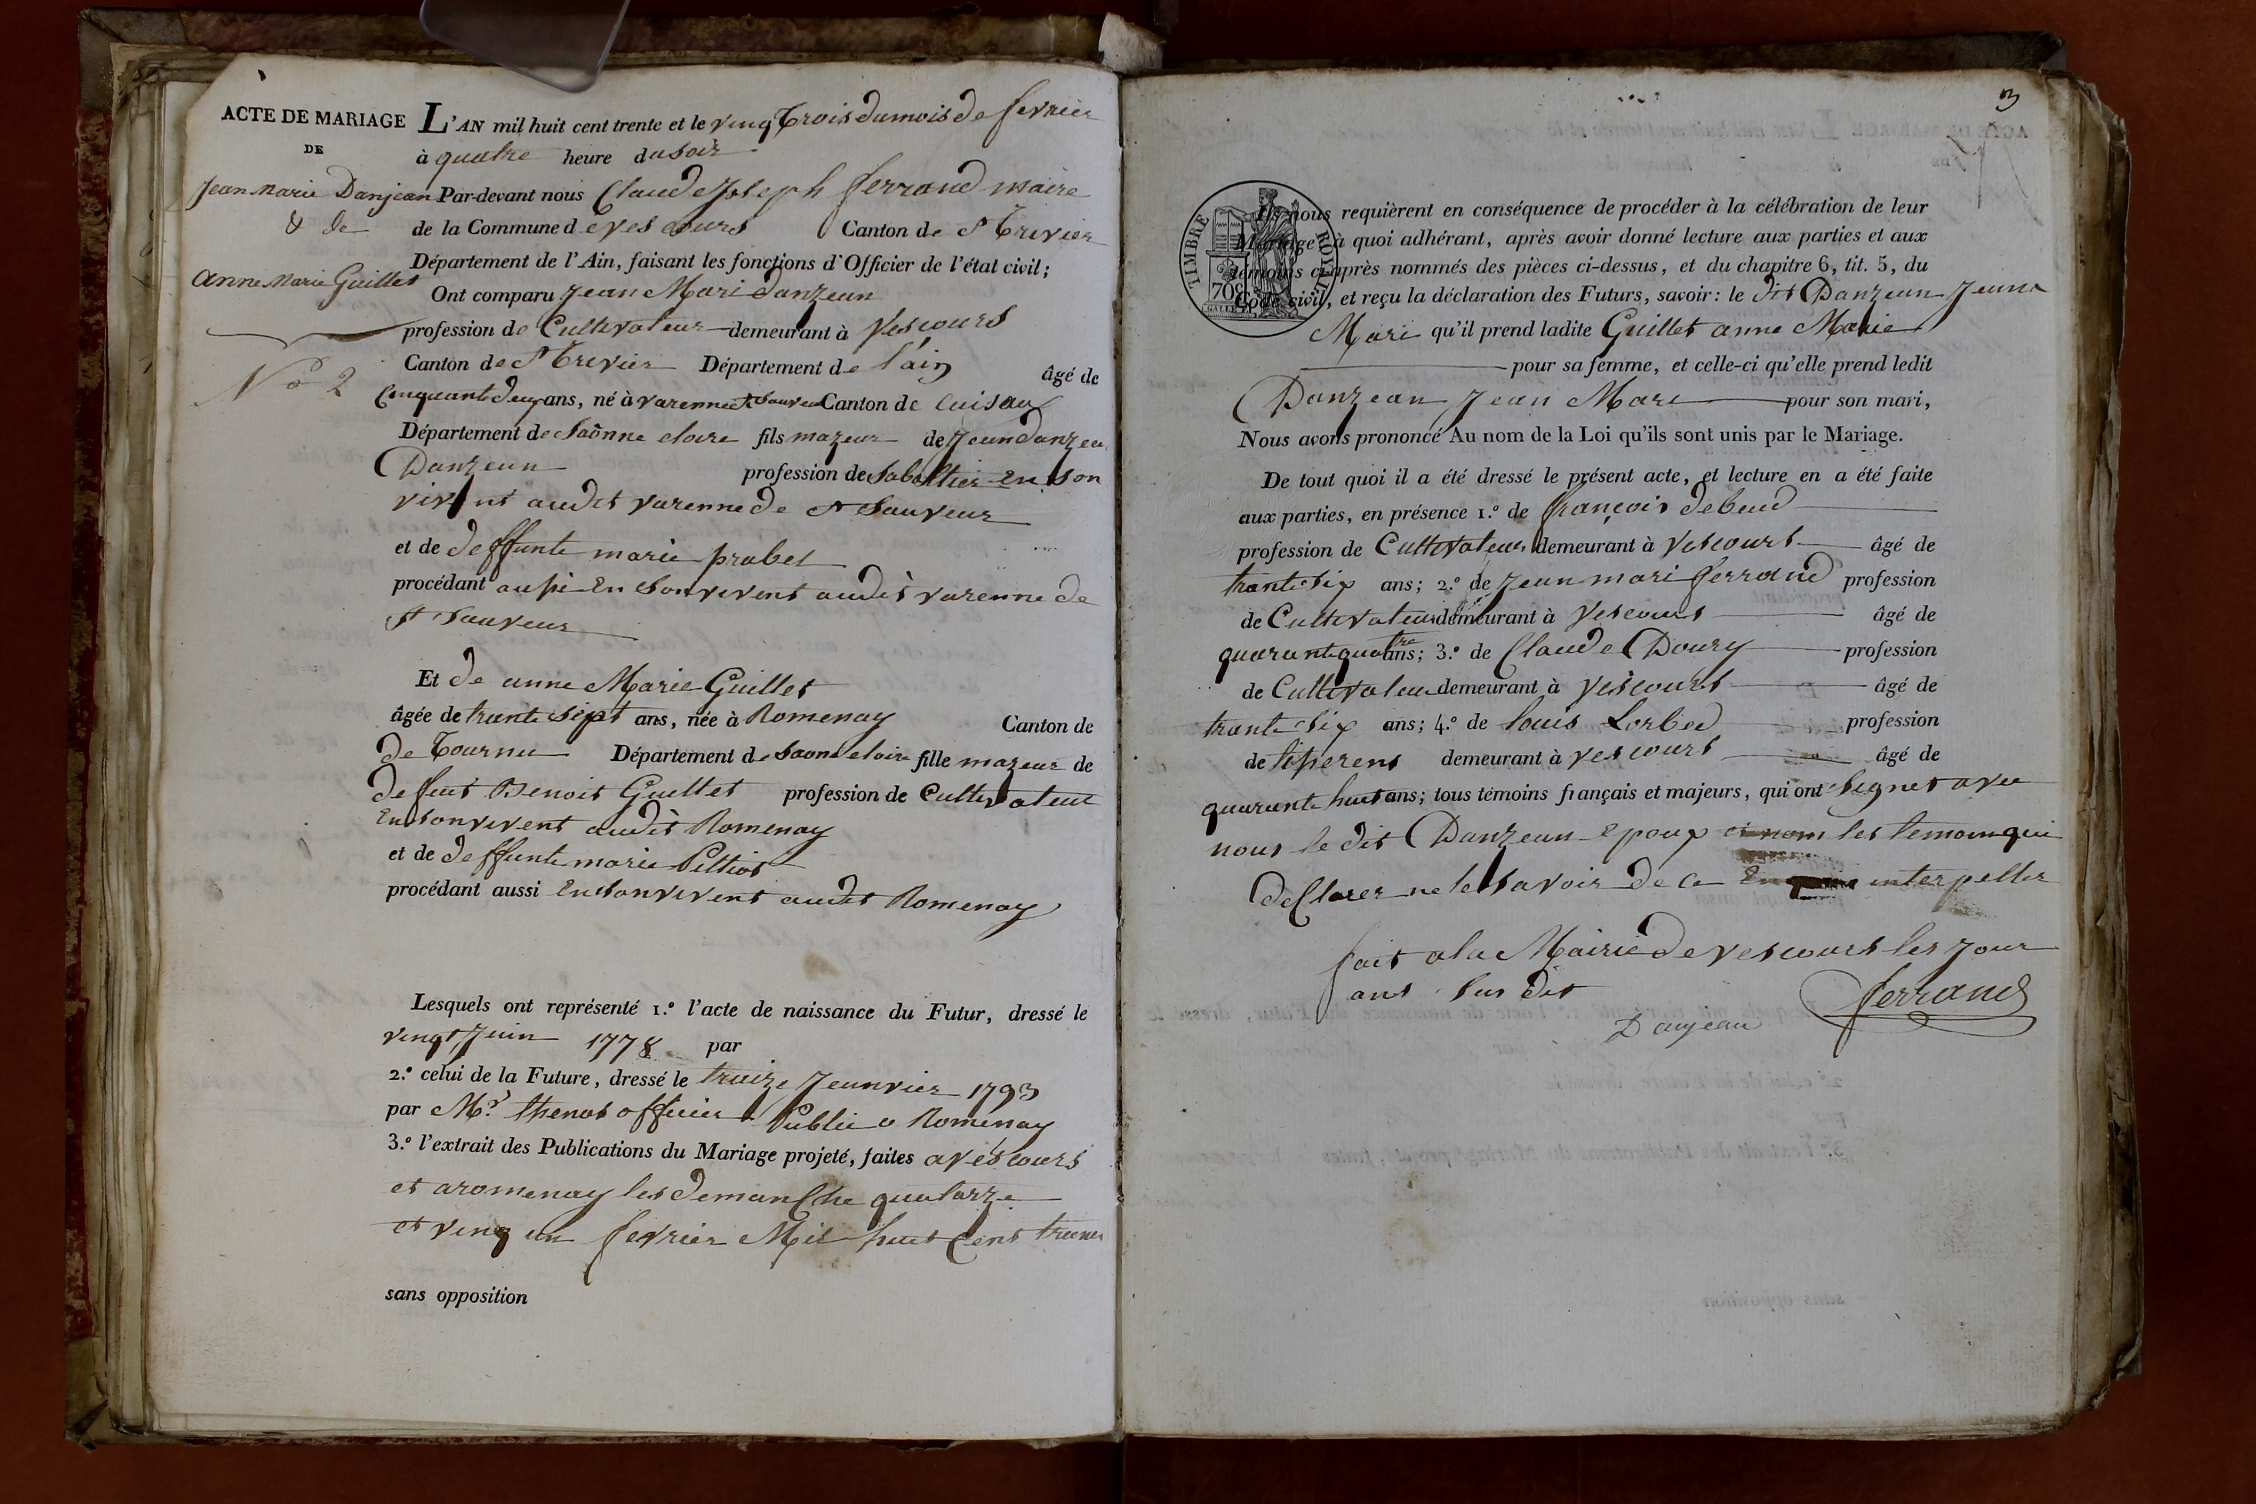 ACTE DE MARIAGE
DE
Jean Marie Danjean
& de
Anne Marie Guillet
N.º 2
L'AN mil huit cent trente et le vingt Trois du mois de fevrier
à quatre heure du Soir
Par-devant nous Claude Joseph ferrand maire
de la Commune de Vescours Canton de St Trivier
Département de l'Ain, faisant les fonctions d'Officier de l'état civil;
Ont comparu Jean Mari danzean
profession de Cultivateur demeurant à Vescours
Canton de St Trivier Département de l'ain âgé de
Cinquante deux ans, né à varenne St Sauveur Canton de cuiseau
Département de Saônne eloire fils mazeur de Jean danzea
Danzean profession de Sabottier en son
vivant audit varenne de St Sauveur
et de deffunte marie prabel
procédant aussi En Son vivent audit varenne de
St Sauveur
Et de anne Marie Guillet
âgée de trante sept ans, née à Romenay Canton de
de Tournu Département de Saone eloire fille mazeur de
deffeut Benoit Guillet profession de Cultivateur
En Son vivent audit Romenay
et de deffunte marie Peltiot
procédant aussi En Son vivent audit Romenay
Lesquels ont représenté 1.º l'acte de naissance du Futur, dressé le
vingt Juin 1778 par
2.º celui de la Future, dressé le traize Jeanvier 1793
par Mr. thenot officier Public a Romenay
3.º l'extrait des Publications du Mariage projeté, faites a vescours
et a romenay les demanche quatorze
et ving un fevrier Mil huit Cent trente
sans opposition
3
TIMBRE ROYAL
70c
Ils nous requièrent en conséquence de procéder à la célébration de leur
Mariage, à quoi adhérant, après avoir donné lecture aux parties et aux
témoins ci-après nommés des pièces ci-dessus, et du chapitre 6, tit. 5, du
Code civil, et reçu la déclaration des Futurs, savoir: le dit Danzean Jeane
Mari qu'il prend ladite Guillet anne Marie
pour sa femme, et celle-ci qu'elle prend ledit
Danzean Jean Mari pour son mari,
Nous avons prononcé Au nom de la Loi qu'ils sont unis par le Mariage.
De tout quoi il a été dressé le présent acte, et lecture en a été faite
aux parties, en présence 1.º de françois debeud
profession de Cultivateur demeurant à Vescours âgé de
trante Six ans; 2.º de Jean mari ferrand profession
de Cultivateur demeurant à Vescours âgé de
quarante quatre ans; 3.º de Claude Doury profession
de Cultivateur demeurant à Vescours âgé de
trante Six ans; 4.º de louis Lorbed profession
de tisserent demeurant à vescours âgé de
quarante huit ans; tous témoins français et majeurs, qui ont Signet avec
nous le dit Danzean Epoux et nom les temoin qui
declarer ne le Savoir de ce En interpeller
fait a la Mairie de vescours les Jour
ant Sus dit
ferrand
Danjean